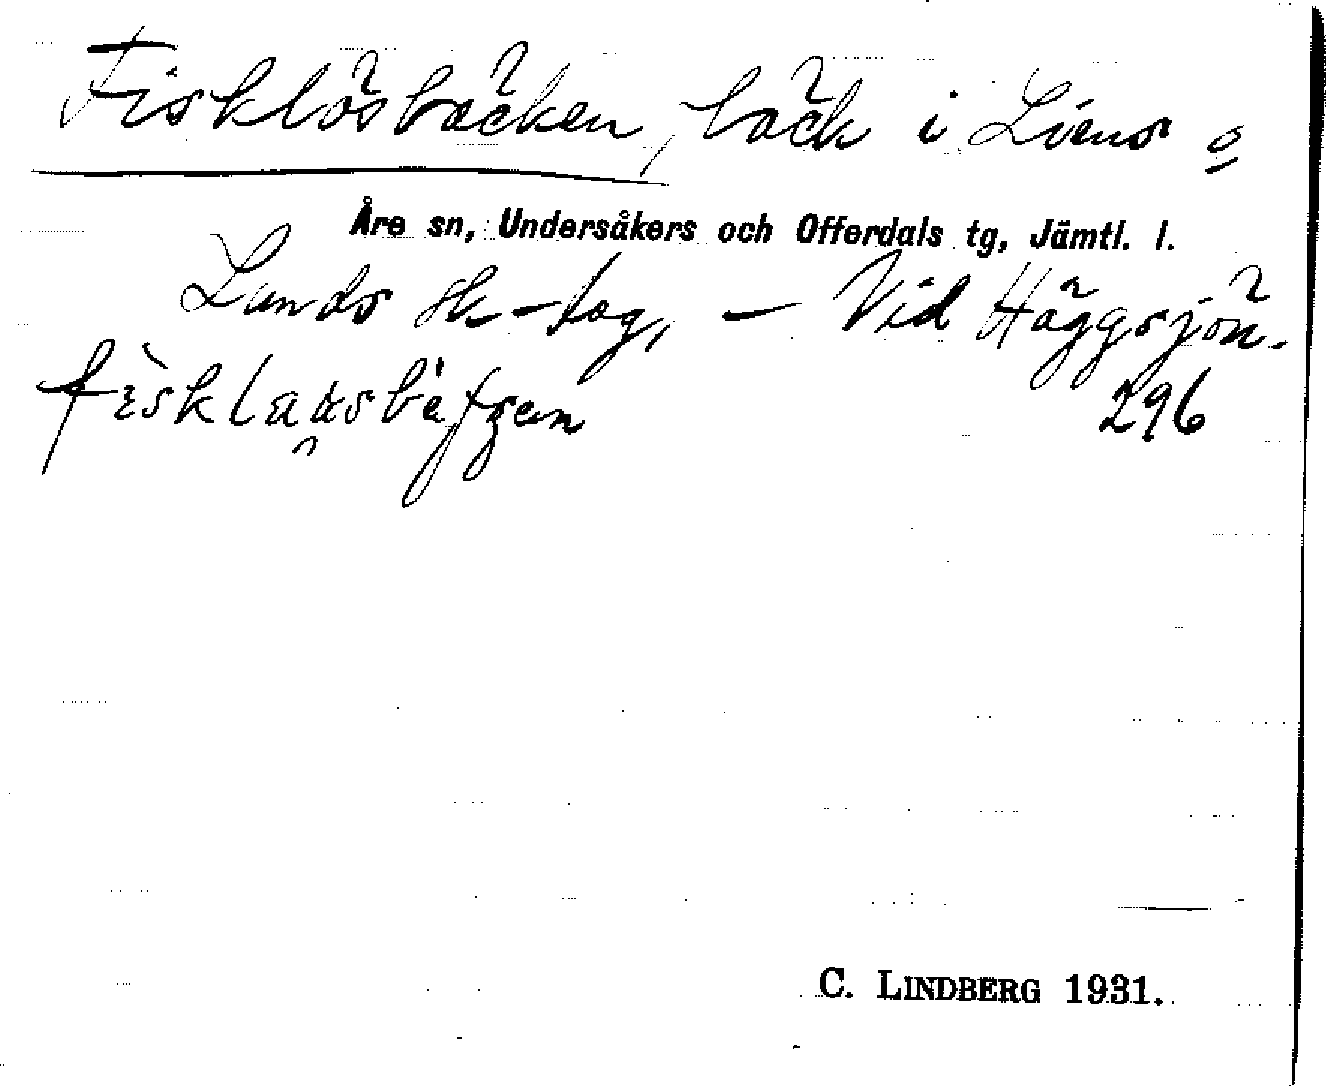 Fisklösbäcken, bäck i Liens o
Åre sn, Undersåkers och Offerdals tg, Jämtl. l.
Lunds sk-lag, – Vid Häggsjön.
296
C. LINDBERG 1931.